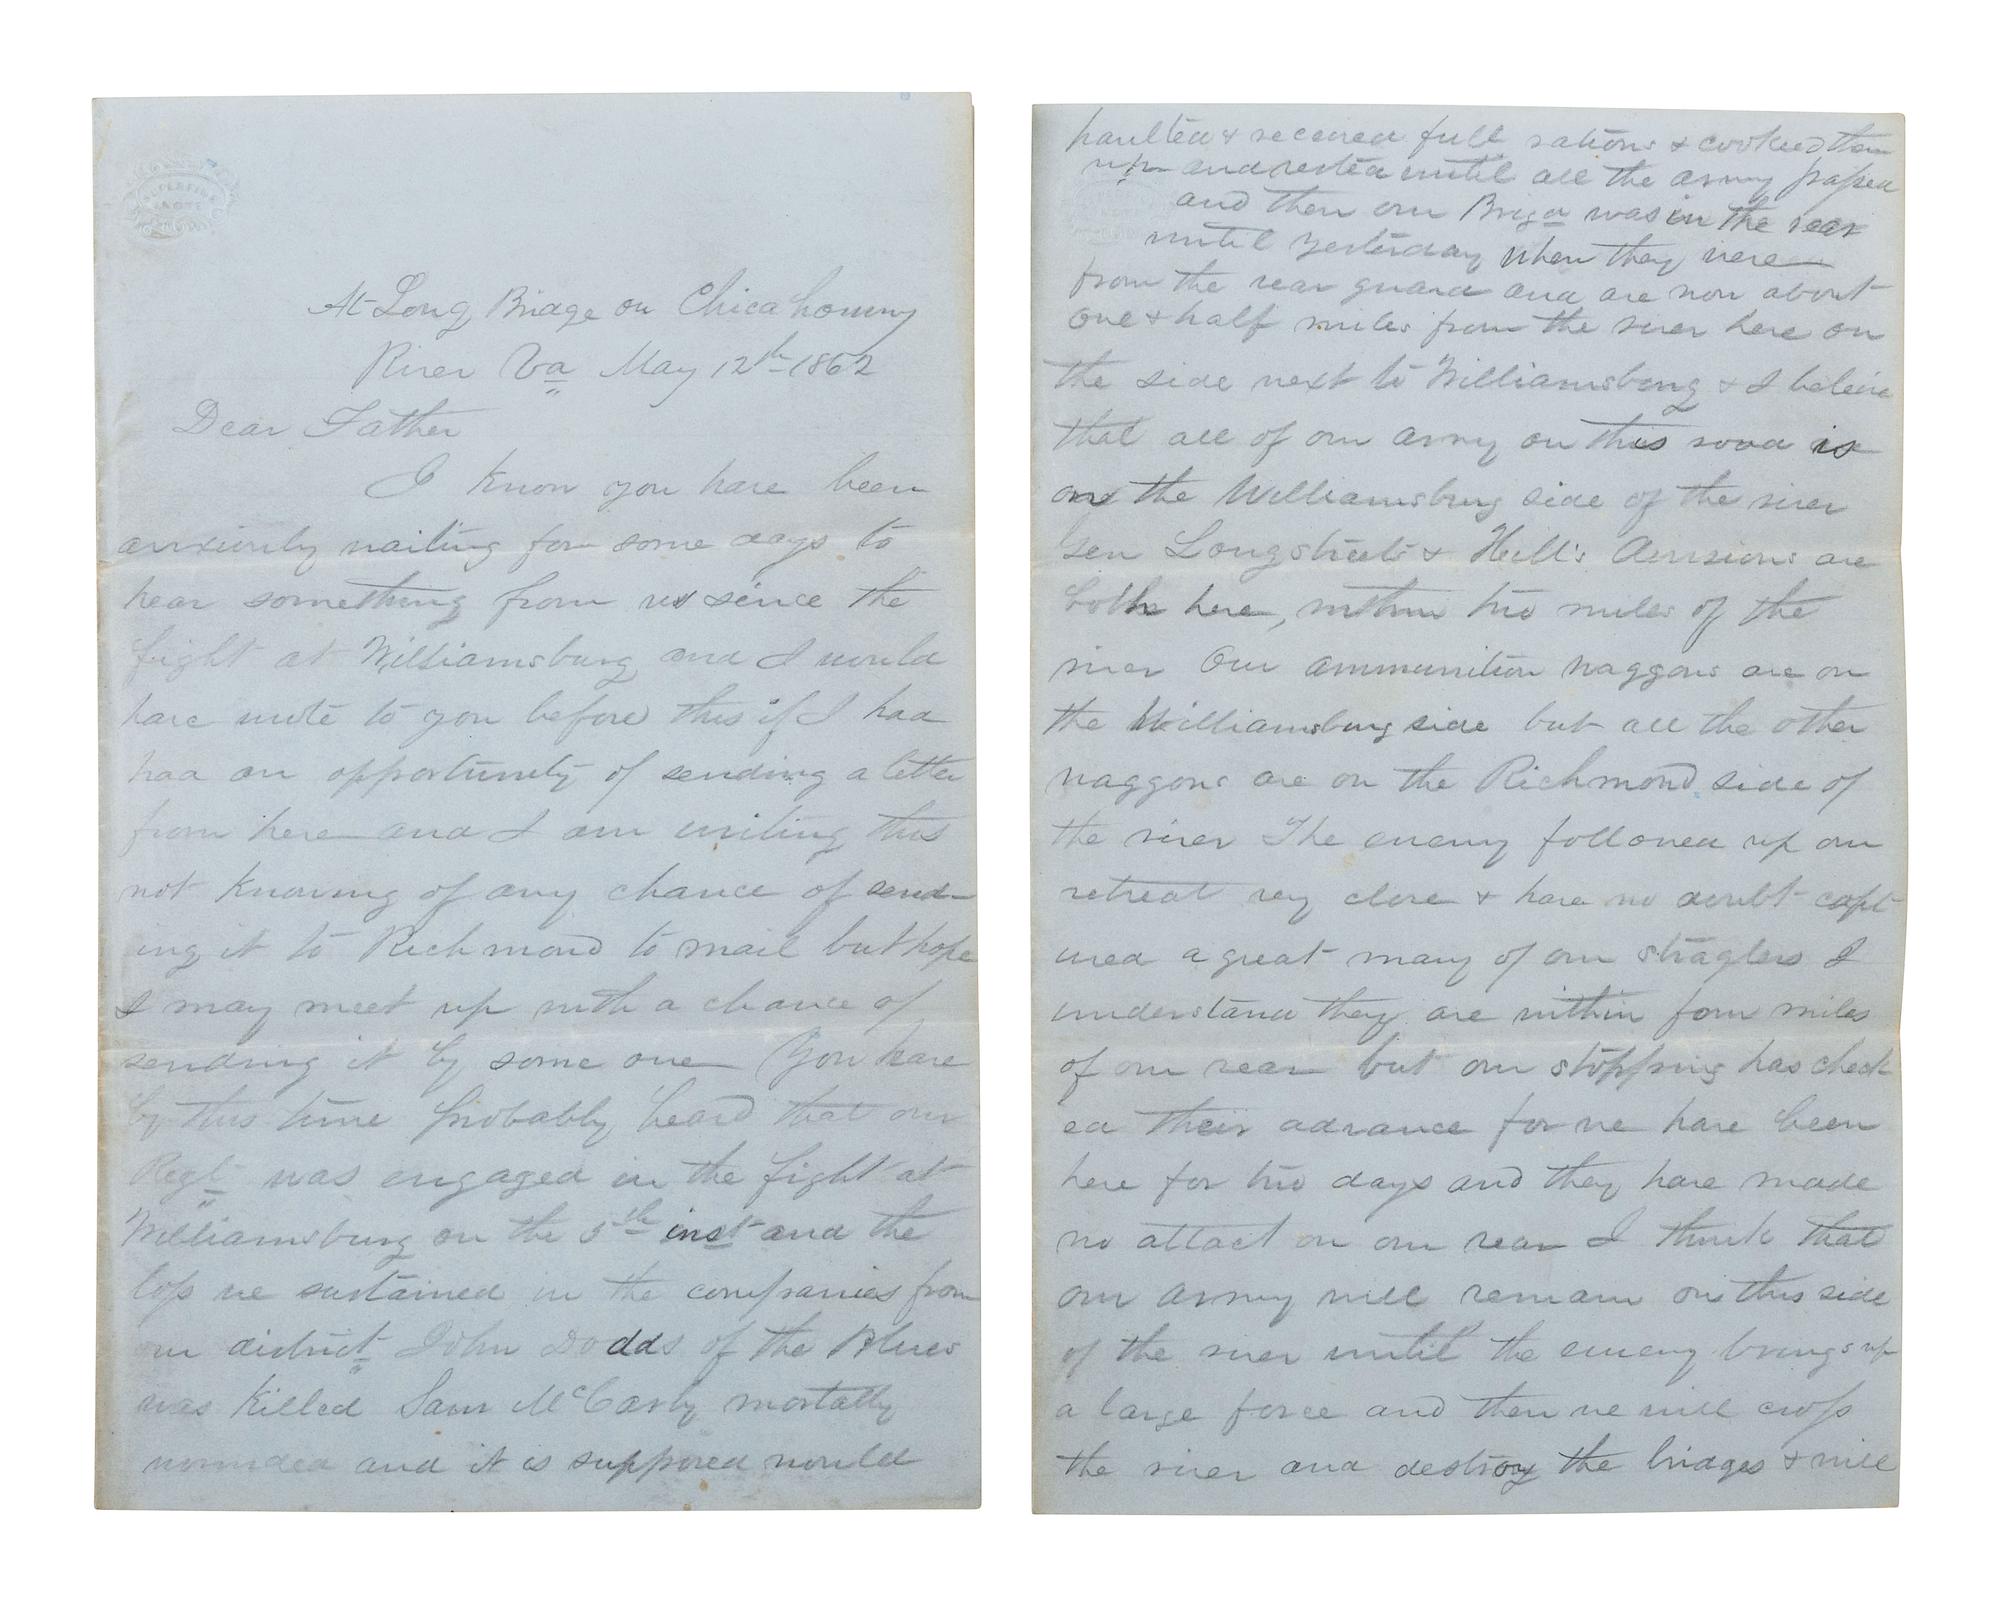 At Long Bridge on Chicahominy
River Va May 12th 1862
Dear Father
I know you have been
anxiously waiting for some days to
hear something from us since the
fight at Williamsburg and I would
have wrote to you before this if I had
had an opportunity of sending a letter
from here and I am writing this
not knowing of any chance of send-
ing it to Richmond to mail but hope
I may meet up with a chance of
sending it by some one You have
by this time probably heard that our
Regt was engaged in the fight at
Williamsburg on the 5th inst and the
loss we sustained in the companies from
our district John Dodds of the Blues
was killed Sam McCarty mortally
wounded and it is supposed would
haulted & received full rations & cooked them
up and rested until all the army passed
and then our Brigd was in the rear
until yesterday when they were
from the rear guard and are now about
one & half miles from the river here on
the side next to Williamsburg & I beleive
that all of our army on this road is
on the Williamsburg side of the river
Gen Longstreets & Hill's divisions are
both here, within two miles of the
river Our ammunition waggons are on
the Williamsburg side but all the other
waggons are on the Richmond side of
the river The enemy followed up our
retreat very close & have no doubt capt
ured a great many of our straglers I
understand they are within four miles
of our rear but our stopping has check
ed their advance for we have been
here for two days and they have made
no attact on our rear I think that
our army will remain on this side
of the river until the enemy brings up
a large force and then we will cross
the river and destroy the bridges & will